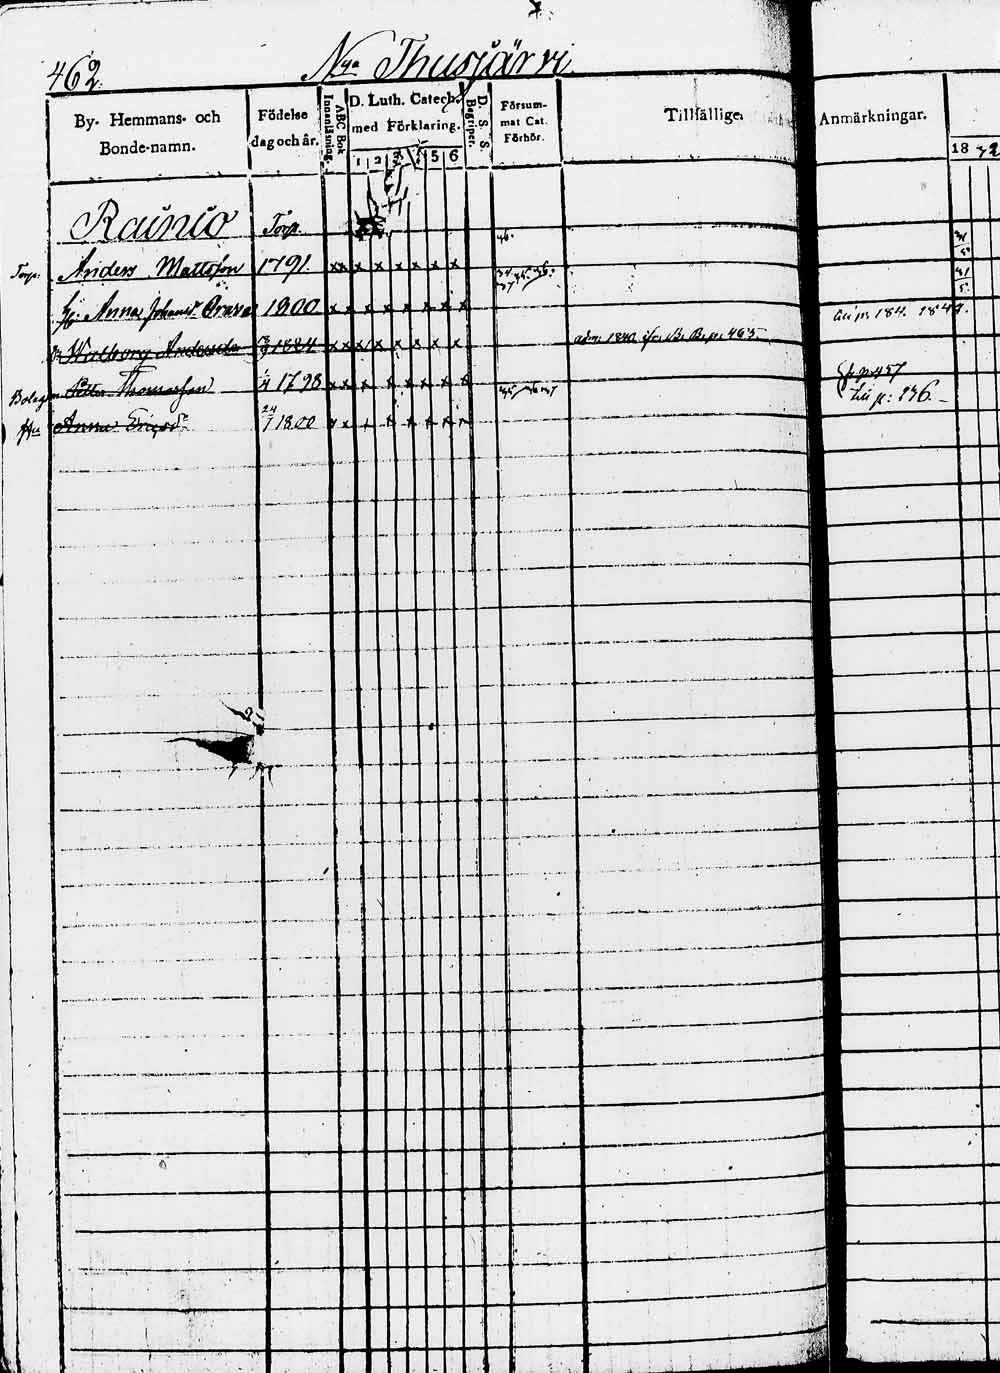 462. Nya Thusjärvi
By- Hemmans- och Bonde-namn.
Födelse dag och år.
ABC Bok Innanläsning.
D. Luth. Catech. med Förklaring.
1 2 3 5 6
D. S. S. Begriper.
Försummat Cat. Förhör.
Tillfällige.
Anmärkningar.
18 32
Rainio Torp. 46.
Torp. Anders Mattsson 1791. x x x x x x x x 34 35. 36. 37
Anna Johansdr 1800 x x x x x x x x x p. 184. 1847.
Walborg Andersdr 1824 x x x x x x x x 1840 p. 465.
Petter Thomasson 1798 x x x x x x x x x 35 36 37 p. 457
till p: 236.
Anna Ericsdr 24/7 1800 x x x x x x x x